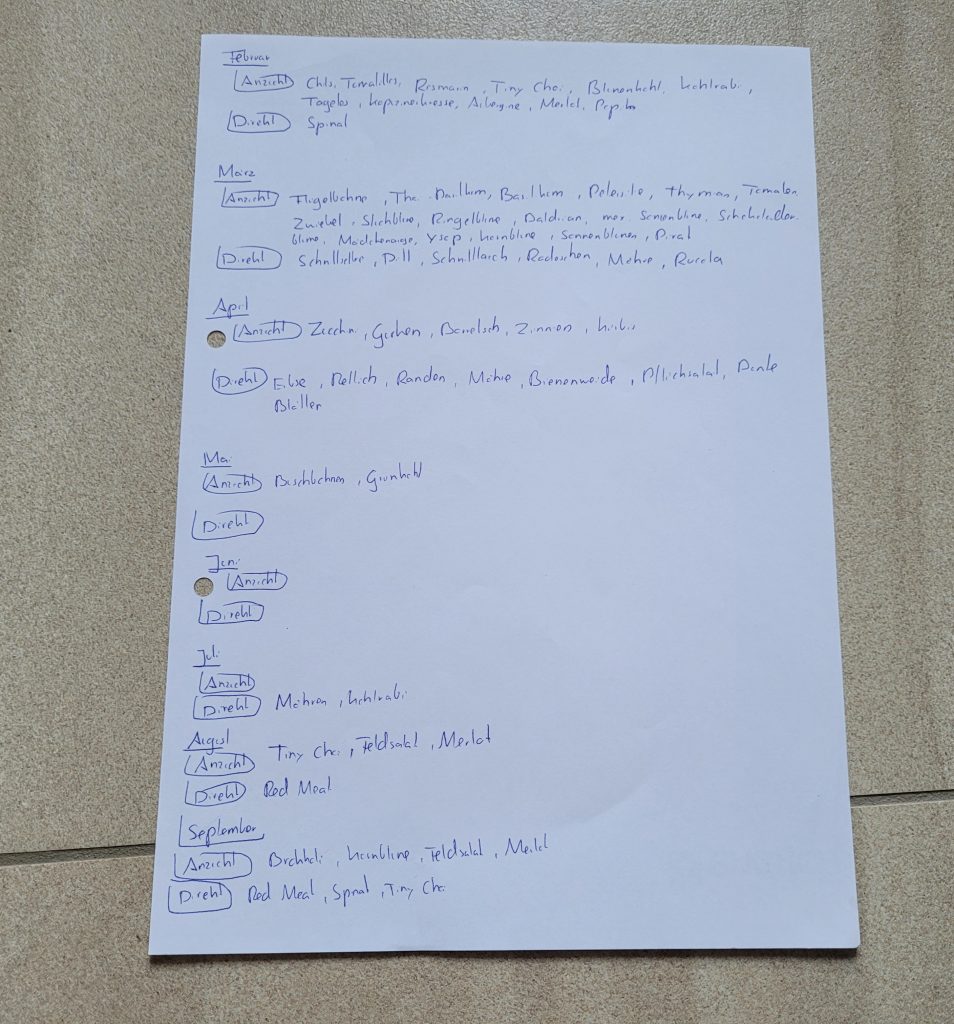 Februar
Anzucht Chilis, Tomatillos, Rosmarin, Tiny Choi, Blumenkohl, Kohlrabi,
Tagetes, Kapuzinerkresse, Aubergine, Merlot,
Direkt Spinat
März
Anzucht Flügelbohne, Thai Basilikum, Basilikum, Petersilie, Thymian, Tomaten
Zwiebel, Ringelblume, Baldrian, mex. Sonnenblume, Schokoladen
blume, Mädchenauge, Ysop, Kornblume, Sonnenblumen
Direkt Schnittsellerie, Dill, Schnittlauch, Radieschen, Möhre, Rucola
April
Anzucht Zucchini, Gurken, Zinnien, Kürbis
Direkt Erbse, Rettich, Randen, Möhre, Bienenweide, Pflücksalat,
Blätter
Mai
Anzucht Buschbohnen, Grünkohl
Direkt
Juni
Anzucht
Direkt
Juli
Anzucht
Direkt Möhren, Kohlrabi
August
Anzucht Tiny Choi, Feldsalat, Merlot
Direkt Red Meat
September
Anzucht Kornblume, Feldsalat, Merlot
Direkt Red Meat, Spinat, Tiny Choi